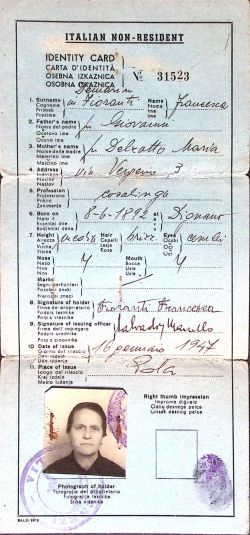 ITALIAN NON-RESIDENT
IDENTITY CARD
CARTA D'IDENTITÀ
OSEBNA IZKAZNICA
OSOBNA ISKAZNICA
Nº 31523
1. Surname
Cognome
Priimek
Prezime
in Fioranti
Name
Nome
Ime
Ime
Francesca
2. Father's name
Nome del padre
Očetovo ime
Očevo ime
fu Giovanni
3. Mother's name
Nome della madre
Materino ime
Majčino ime
fu Delzotto Maria
4. Address
Indirizzo
Naslov
Naslov
via Vergerio 3
5. Profession
Professione
Poklic
Zanimanje
casalinga
6. Born on
Nato il
Rojen dne
Rodjen dne
8-6-1892
at
a
7. Height
Statura
Hair
Capelli
Lasje
Kosa
brizz.
Eyes
Occhi
Oči
Oči
Nose
Naso
Nos
Nos
Mouth
Bocca
Usta
Usta
Marks
8. Signature of holder
Firma del proprietario
Fioranti Francesca
9. Signature of issuing officer
10. Date of issue
Giorno del rilascio
16 gennaio 1947
11. Place of issue
Luogo del rilascio
Kraj izdaje
Mjesto izdanja
Pola
Right thumb impression
Impronta digitale
Odtis desnega palca
Otisak desnog palca
Photograph of holder
Fotografia del proprietario
Fotografija lastnika
Slika vlasnika